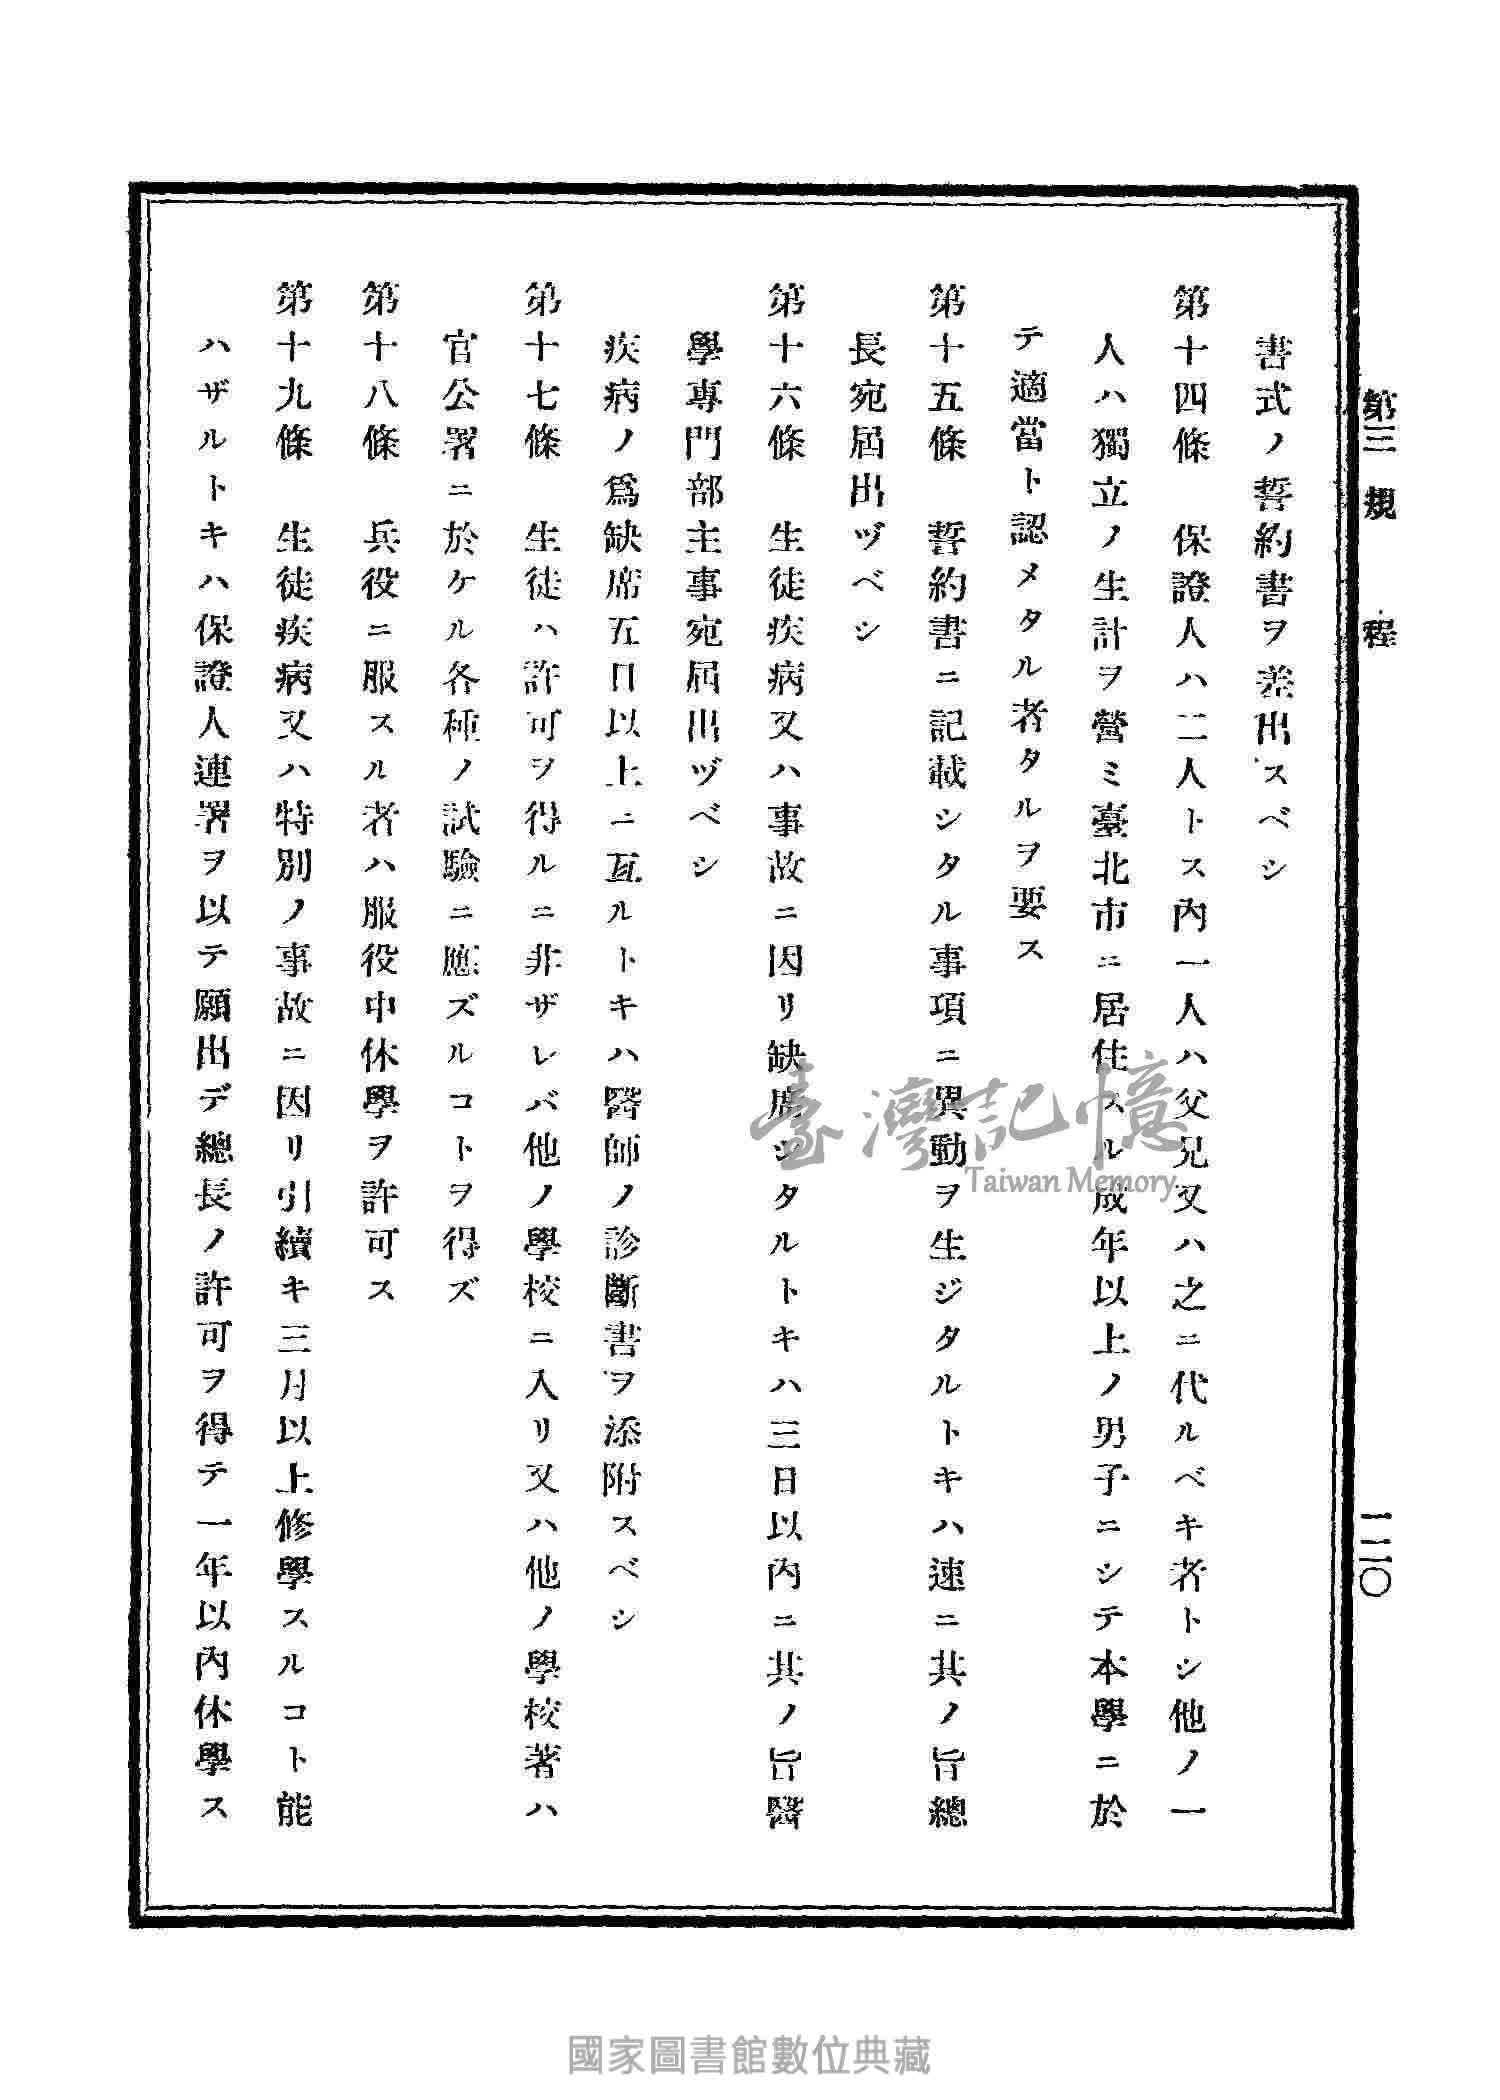 第三 規程
一二〇
書式ノ誓約書ヲ差出スベシ
第十四條 保證人ハ二人トス內一人ハ父兄又ハ之ニ代ルベキ者トシ他ノ一
人ハ獨立ノ生計ヲ營ミ臺北市ニ居住スル成年以上ノ男子ニシテ本學ニ於
テ適當ト認メタル者タルヲ要ス
第十五條 誓約書ニ記載シタル事項ニ異動ヲ生ジタルトキハ速ニ其ノ旨總
長宛屆出ヅベシ
第十六條 生徒疾病又ハ事故ニ因リ缺席シタルトキハ三日以內ニ其ノ旨醫
學專門部主事宛屆出ヅベシ
疾病ノ爲缺席五日以上ニ亙ルトキハ醫師ノ診斷書ヲ添附スベシ
第十七條 生徒ハ許可ヲ得ルニ非ザレバ他ノ學校ニ入リ又ハ他ノ學校著ハ
官公署ニ於ケル各種ノ試驗ニ應ズルコトヲ得ズ
第十八條 兵役ニ服スル者ハ服役中休學ヲ許可ス
第十九條 生徒疾病又ハ特別ノ事故ニ因リ引續キ三月以上修學スルコト能
ハザルトキハ保證人連署ヲ以テ願出デ總長ノ許可ヲ得テ一年以內休學ス
臺灣記憶
Taiwan Memory
國家圖書館數位典藏